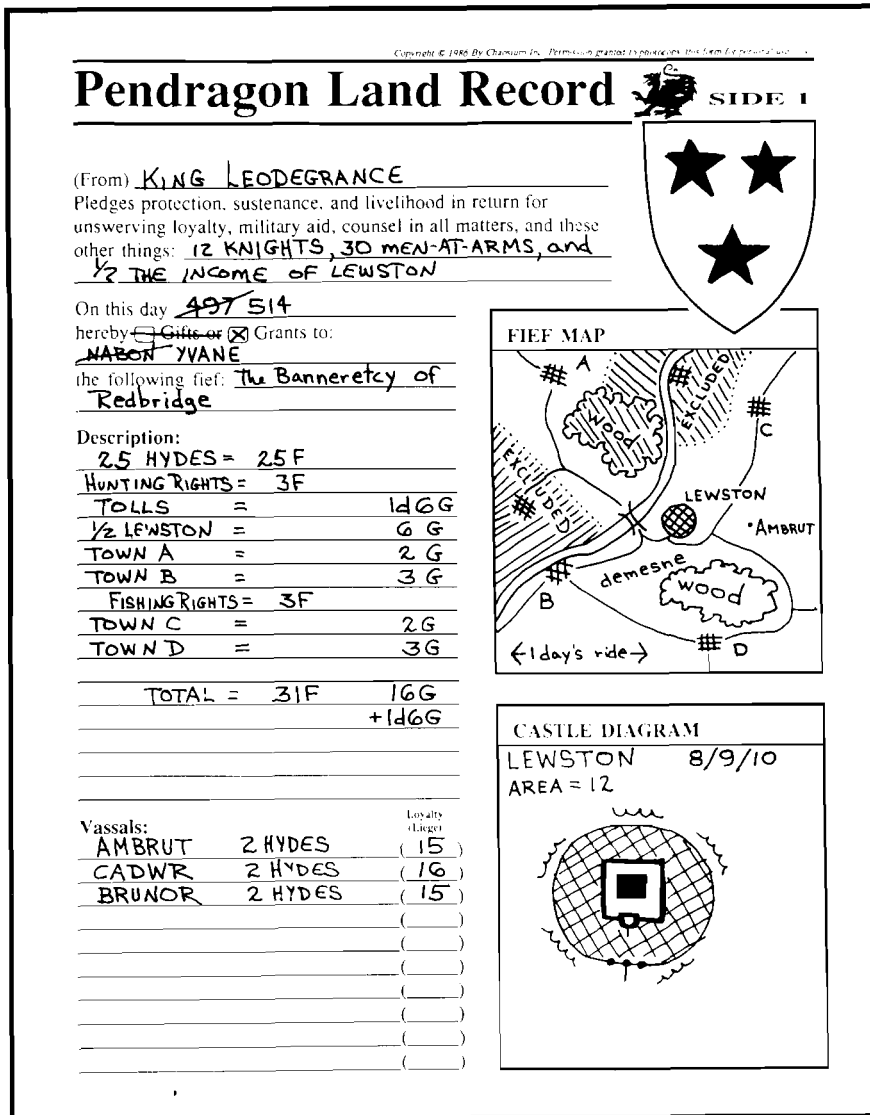 Copyright © 1986 By Chaosium Inc. Permission granted to photocopy this form for personal use
Pendragon Land Record SIDE 1
(From) KING LEODEGRANCE
Pledges protection, sustenance, and livelihood in return for
unswerving loyalty, military aid, counsel in all matters, and these
other things: 12 KNIGHTS, 30 MEN-AT-ARMS, and
1/2 THE INCOME OF LEWSTON
On this day 497 514
hereby Gifts or Grants to:
NABON YVANE
the following fief: The Banneretcy of
Redbridge
Description:
25 HYDES = 25F
HUNTING RIGHTS = 3F
TOLLS = 1d6G
1/2 LEWSTON = 6 G
TOWN A = 2 G
TOWN B = 3 G
FISHING RIGHTS = 3F
TOWN C = 2G
TOWN D = 3G
TOTAL = 31F 16G
+1d6G
Vassals: Loyalty
(Liege)
AMBRUT 2 HYDES (15)
CADWR 2 HYDES (16)
BRUNOR 2 HYDES (15)
FIEF MAP
A
EXCLUDED
WOOD
C
EXCLUDED
LEWSTON
AMBRUT
demesne
WOOD
B
D
←1 day's ride→
CASTLE DIAGRAM
LEWSTON 8/9/10
AREA = 12